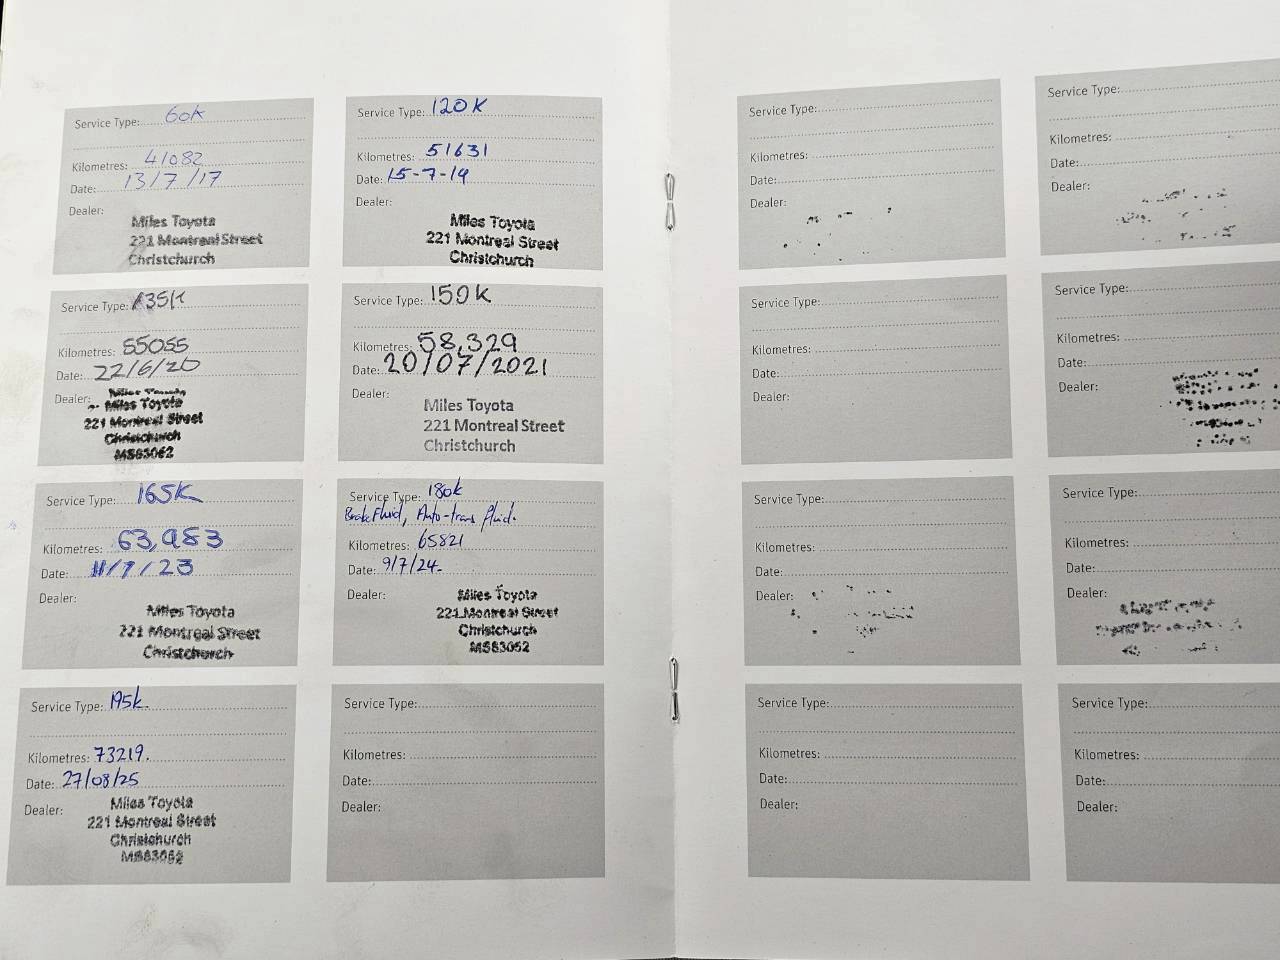 Service Type: 60K
Kilometres: 41082
Date: 13/7/17
Dealer:
Miles Toyota
221 Montreal Street
Christchurch
Service Type: 120K
Kilometres: 51631
Date: 15-7-19
Dealer:
Miles Toyota
221 Montreal Street
Christchurch
Service Type: 135K
Kilometres: 55055
Date: 22/6/20
Dealer:
Miles Toyota
221 Montreal Street
Christchurch
MS83062
Service Type: 150K
Kilometres: 58,329
Date: 20/07/2021
Dealer:
Miles Toyota
221 Montreal Street
Christchurch
Service Type: 165K
Kilometres: 63,983
Date: 11/7/23
Dealer:
Miles Toyota
221 Montreal Street
Christchurch
Service Type: 180k
Brake Fluid, Auto-trans fluid.
Kilometres: 65821
Date: 9/7/24.
Dealer:
Miles Toyota
221 Montreal Street
Christchurch
MS83062
Service Type: 195k.
Kilometres: 73219.
Date: 27/08/25
Dealer:
Miles Toyota
221 Montreal Street
Christchurch
MS83062
Service Type:
Kilometres:
Date:
Dealer:
Service Type:
Kilometres:
Date:
Dealer:
Service Type:
Kilometres:
Date:
Dealer:
Service Type:
Kilometres:
Date:
Dealer:
Service Type:
Kilometres:
Date:
Dealer:
Service Type:
Kilometres:
Date:
Dealer:
Service Type:
Kilometres:
Date:
Dealer:
Service Type:
Kilometres:
Date:
Dealer:
Service Type:
Kilometres:
Date:
Dealer: